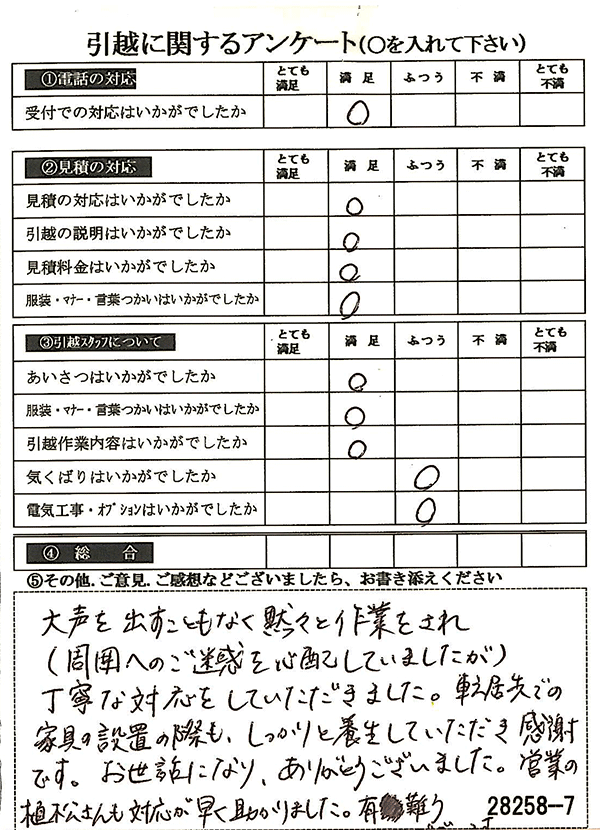 引越に関するアンケート(○を入れて下さい)
①電話の対応 とても満足 満足 ふつう 不満 とても不満
受付での対応はいかがでしたか ○
②見積の対応 とても満足 満足 ふつう 不満 とても不満
見積の対応はいかがでしたか ○
引越の説明はいかがでしたか ○
見積料金はいかがでしたか ○
服装・マナー・言葉つかいはいかがでしたか ○
③引越スタッフについて とても満足 満足 ふつう 不満 とても不満
あいさつはいかがでしたか ○
服装・マナー・言葉つかいはいかがでしたか ○
引越作業内容はいかがでしたか ○
気くばりはいかがでしたか ○
電気工事・オプションはいかがでしたか ○
④総合
⑤その他.ご意見.ご感想などございましたら、お書き添えください
大声を出すこともなく黙々と作業をされ
(周囲へのご迷惑を心配していましたが)
丁寧な対応をしていただきました。転居先での
家具の設置の際も、しっかりと養生していただき感謝
です。お世話になり、ありがとうございました。営業の
植松さんも対応が早く助かりました。有難う
28258-7